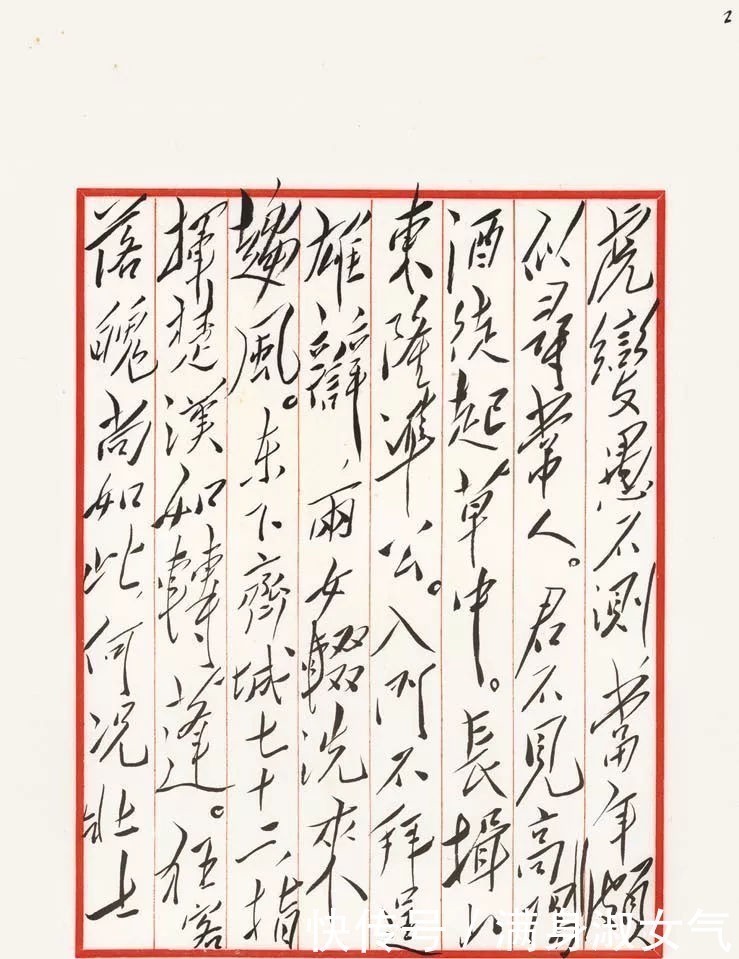 2
虎變愚不測當年頗
似尋常人。君不見高陽
酒徒起草中。長揖山
東隆準公。入門不拜逞
雄辯，兩女輟洗來
趨風。东下齊城七十二，指
揮楚漢如轉蓬。狂客
落魄尚如此，何況壯士
快传号 / 满身淑女气